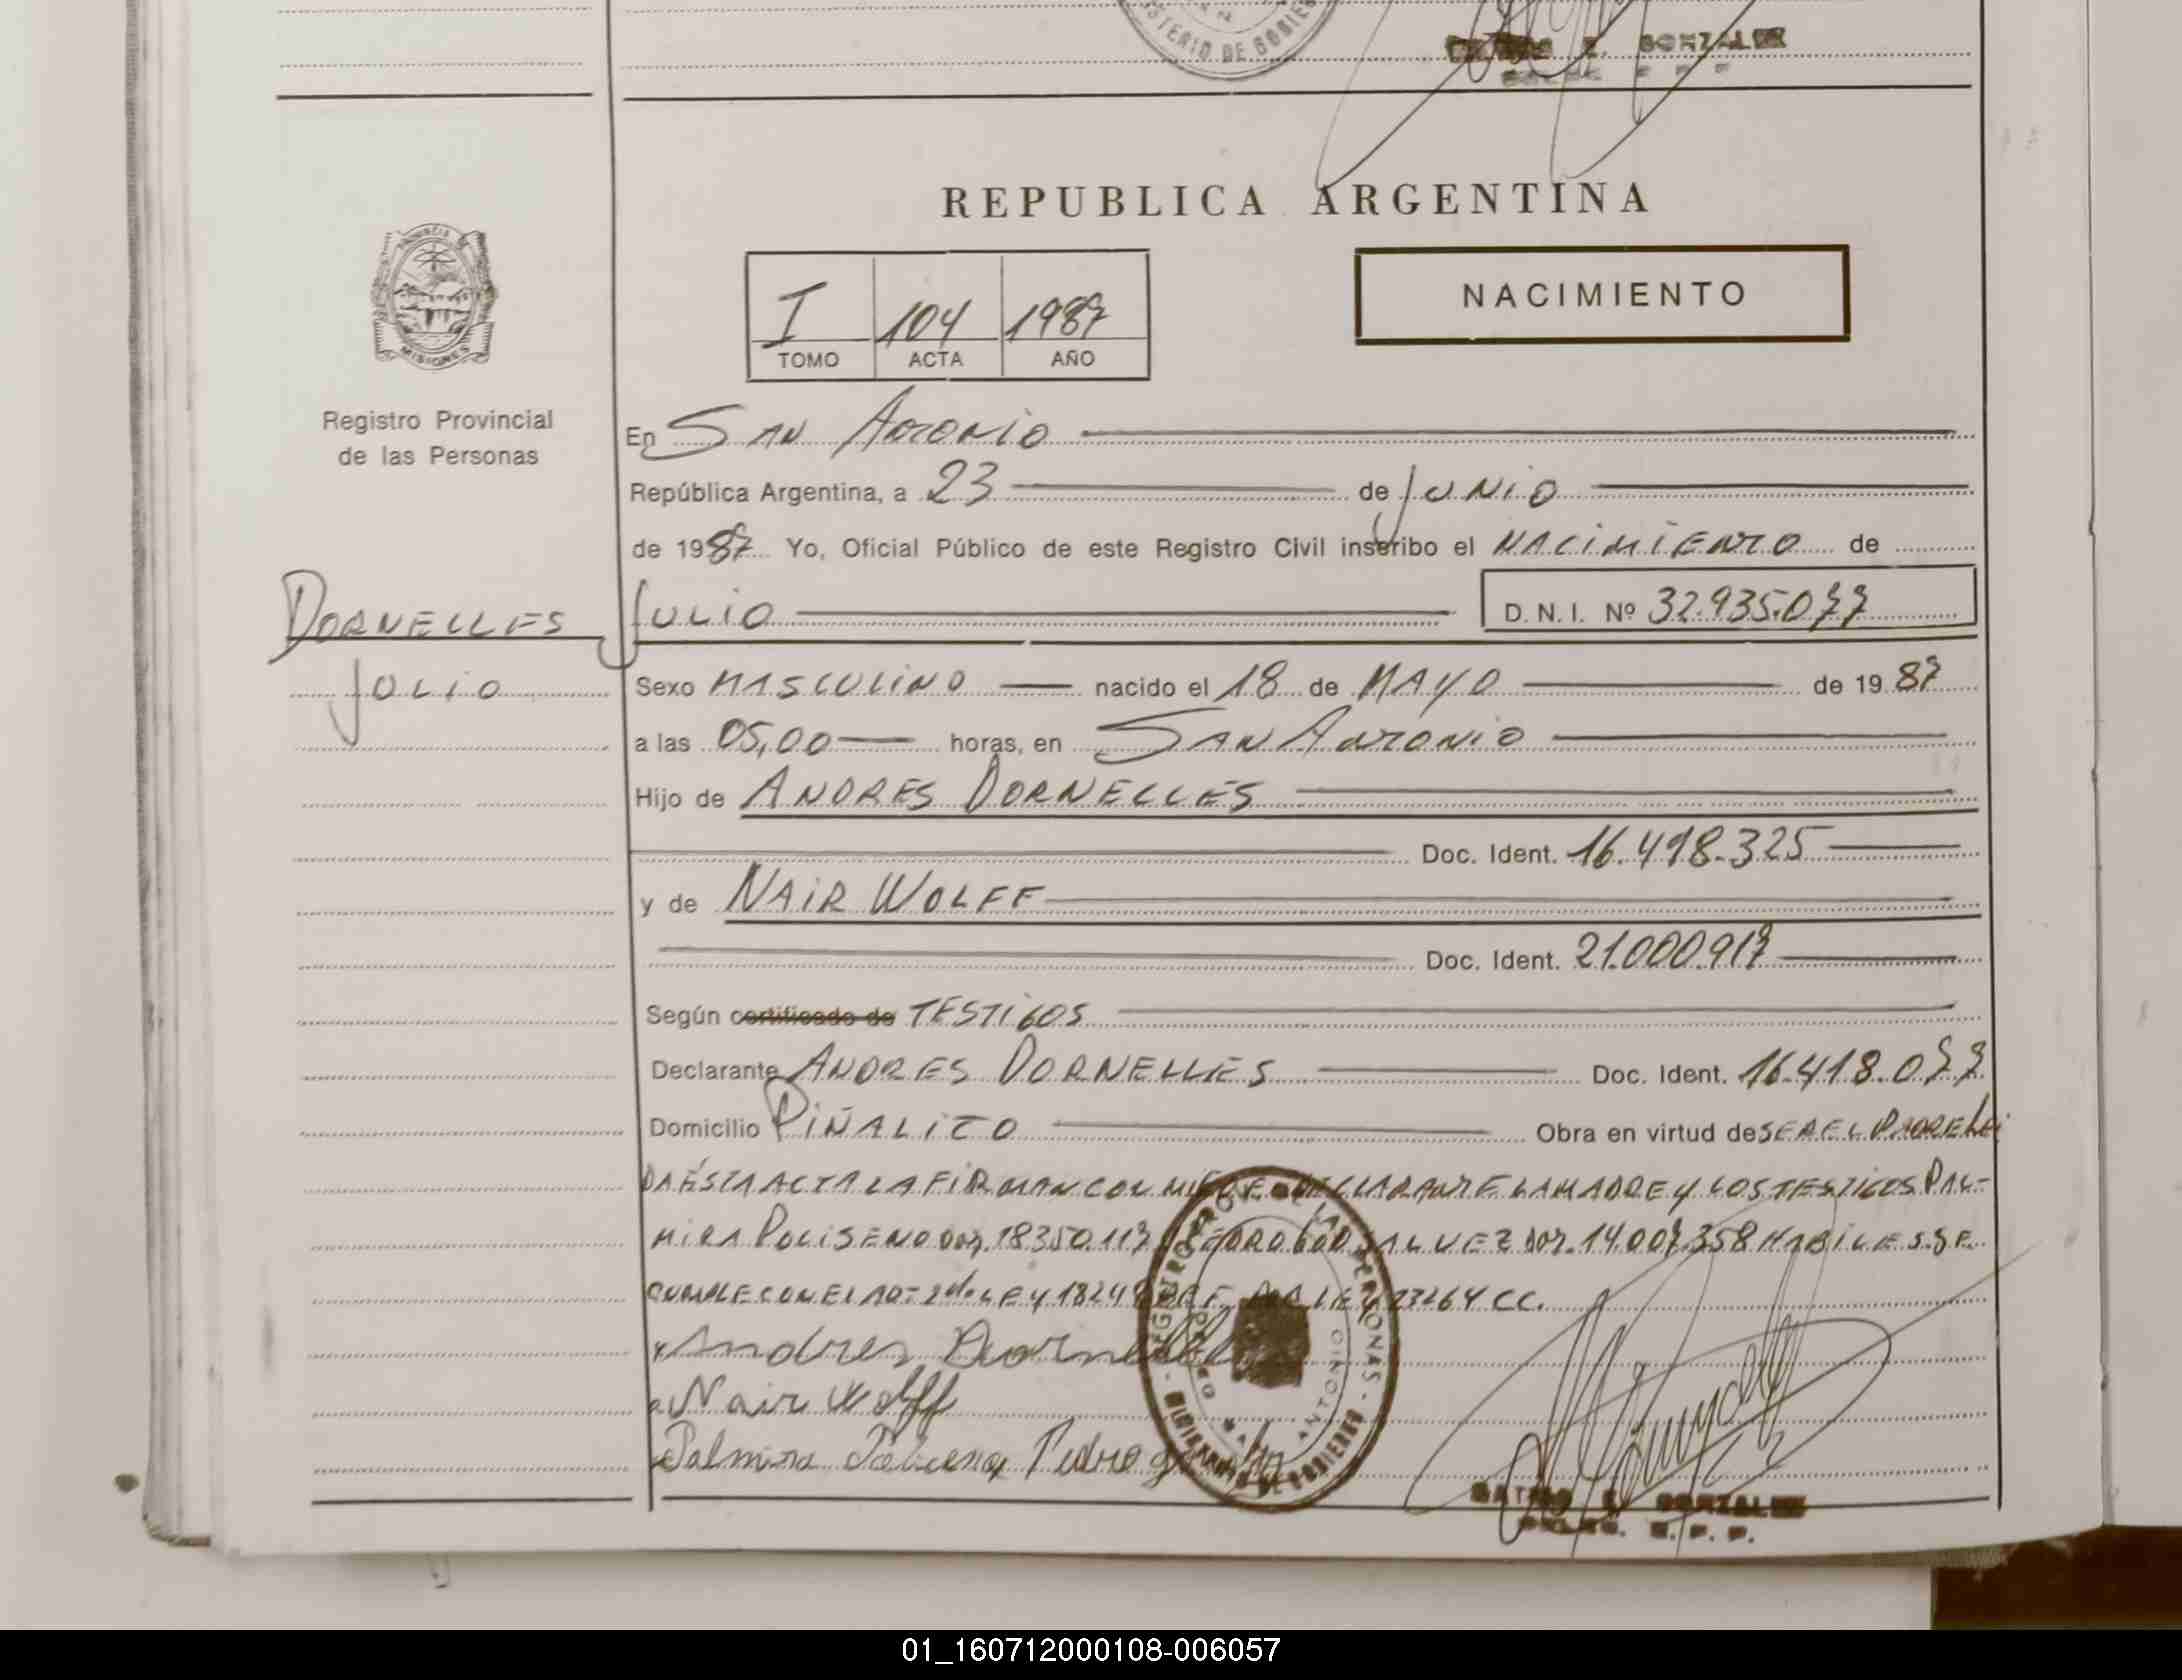 MINISTERIO DE GOBIERNO
E. GONZALEZ
REPUBLICA ARGENTINA
PROVINCIA DE
MISIONES
I 104 1987
TOMO ACTA AÑO
NACIMIENTO
Registro Provincial
de las Personas
En SAN ANTONIO
República Argentina, a 23 de JUNIO
de 1987 Yo, Oficial Público de este Registro Civil inscribo el NACIMIENTO de
DORNELLES
JULIO D. N. I. Nº 32.935.077
JULIO
Sexo MASCULINO nacido el 18 de MAYO de 1987
a las 05,00 horas, en SAN ANTONIO
Hijo de ANDRES DORNELLES
Doc. Ident. 16.418.325
y de NAIR WOLFF
Doc. Ident. 21.000.917
Según certificado de TESTIGOS
Declarante ANDRES DORNELLES Doc. Ident. 16.418.077
Domicilio PIÑALITO Obra en virtud de SER EL PADRE LEI
DA ÉSTA ACTA LA FIRMAN CON MIGO EL DECLARANTE LA MADRE Y LOS TESTIGOS PAL-
MIRA POLISENO DOC. 18350.117 PEDRO ALVEZ DOC. 14.007.358 HABILES. SE
CUMPLE CON EL ART 2do LEY 18248 LEY 23264 CC.
Andres Dornelles
Nair Wolff
Palmira Pedro
REGISTRO PROV. DE LAS PERSONAS
SAN ANTONIO
MINISTERIO DE GOBIERNO
E. GONZALEZ
R. P. P.
01_160712000108-006057